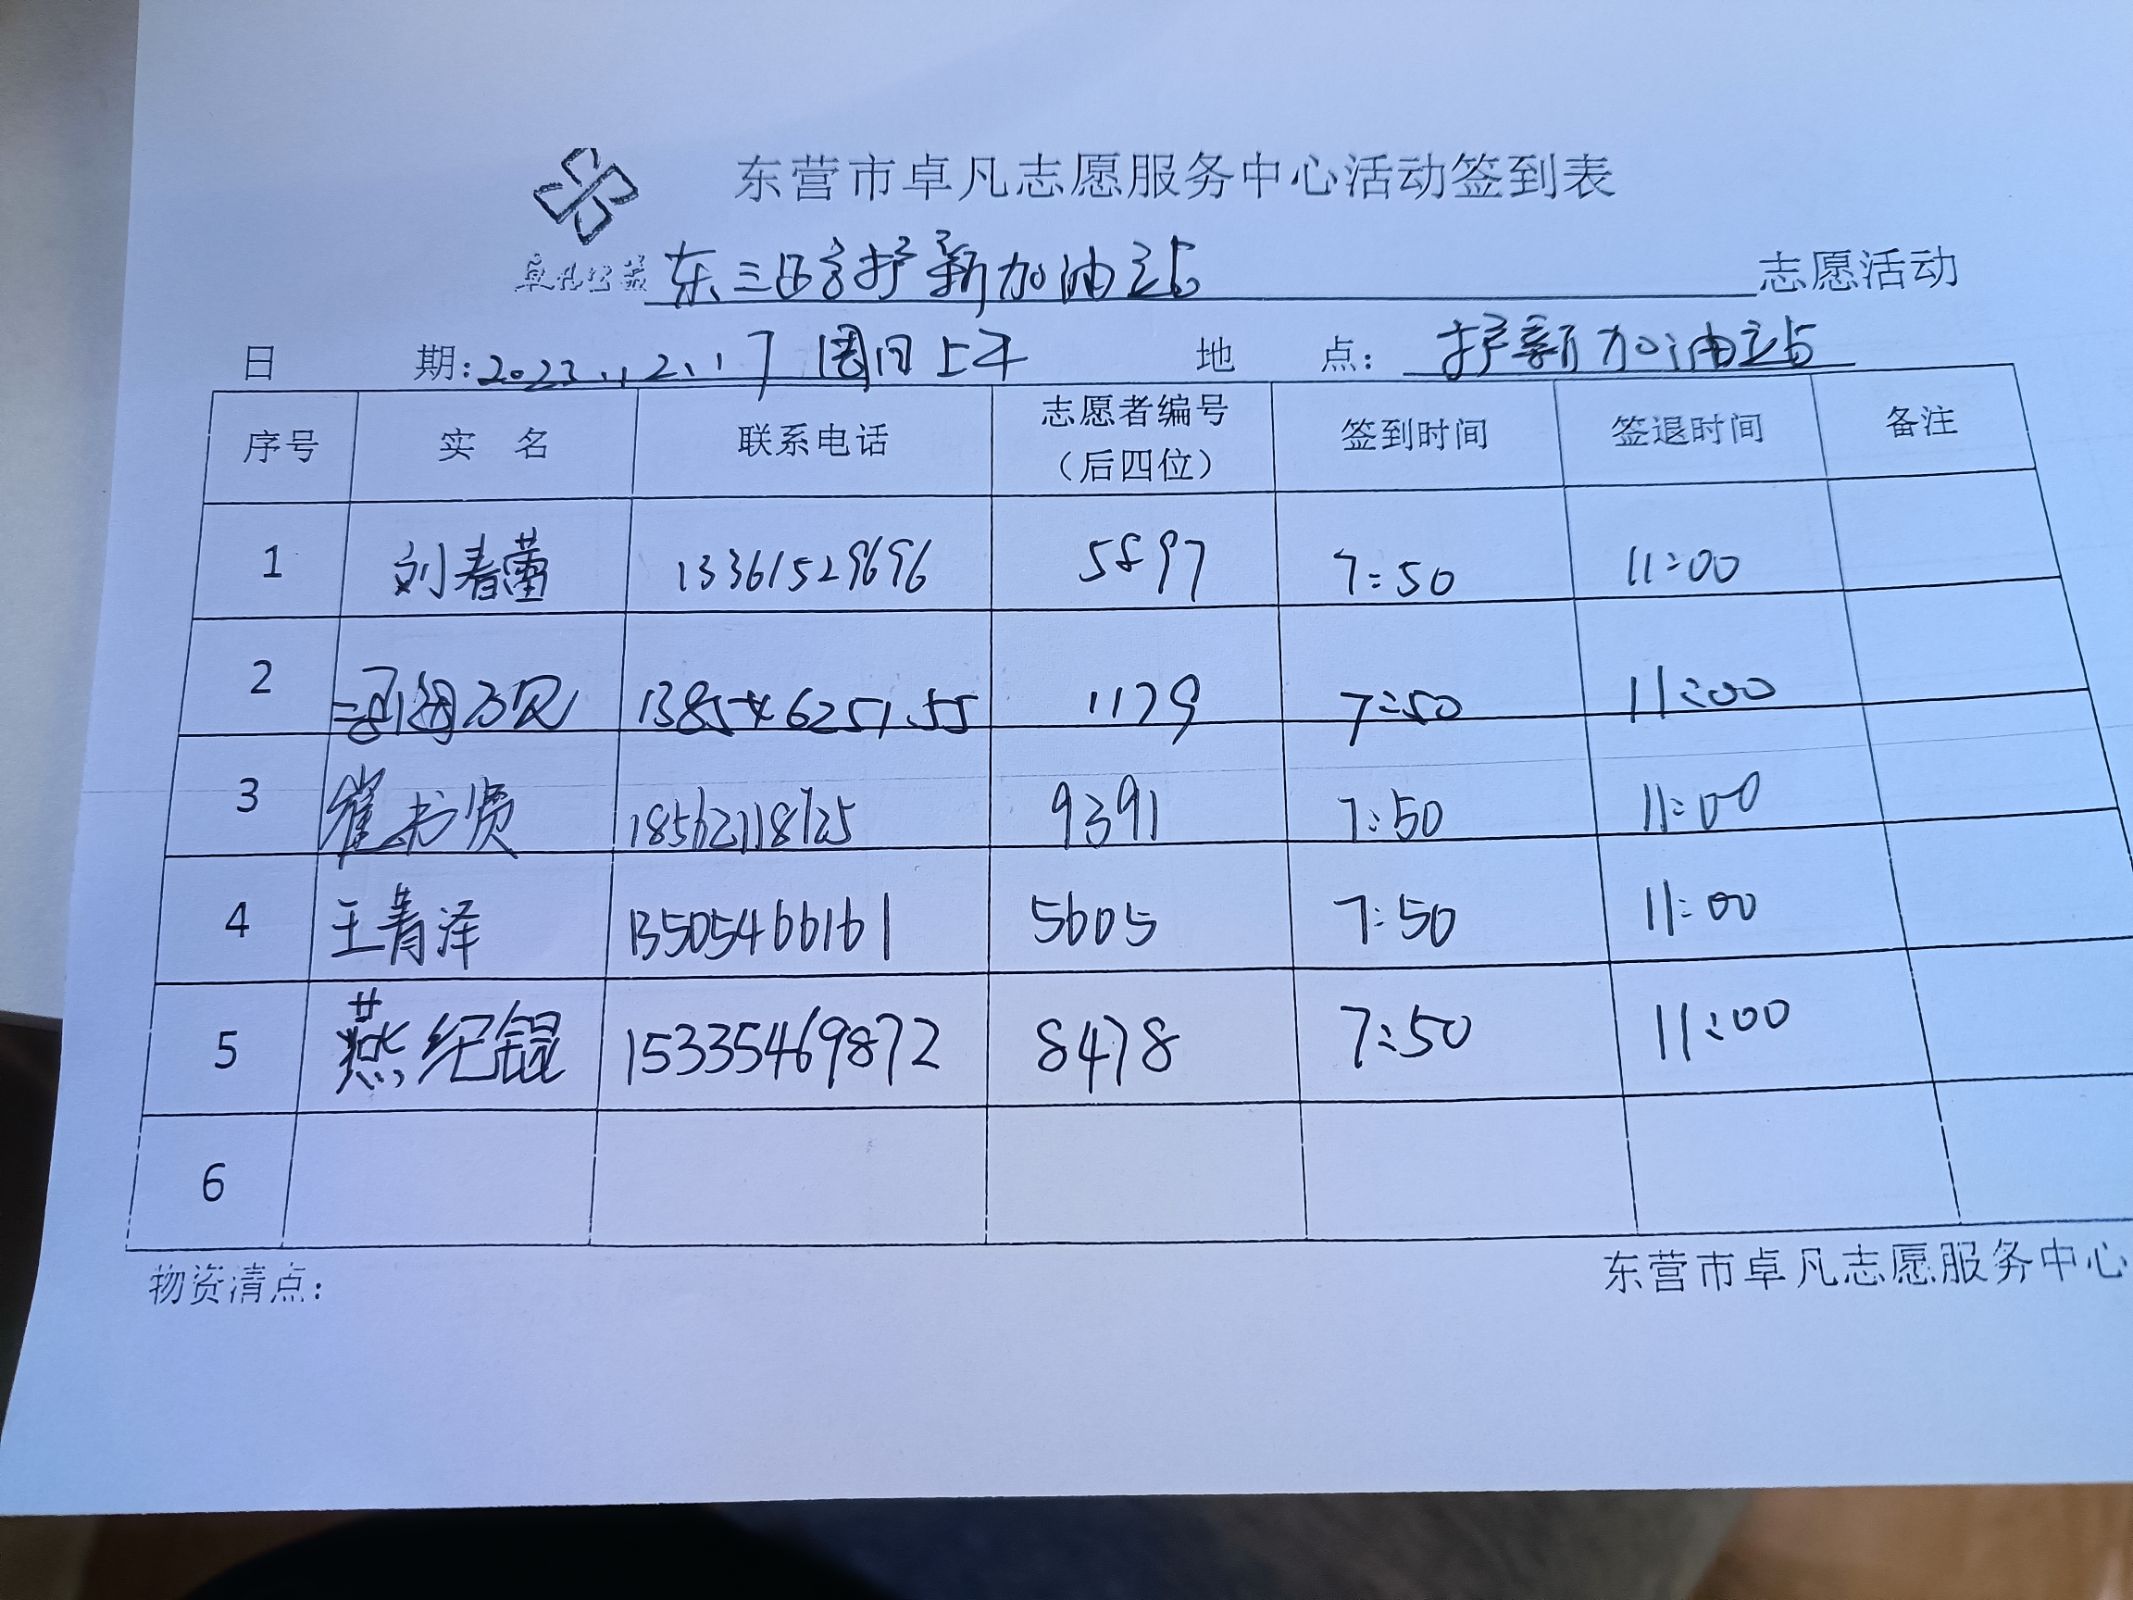 东营市卓凡志愿服务中心活动签到表
卓凡公益 东三路护新加油站 志愿活动
日 期: 2023.12.17 周日上午 地 点: 护新加油站
序号 实 名 联系电话 志愿者编号（后四位） 签到时间 签退时间 备注
1 刘春蕾 13361529696 5897 7:50 11:00
2 13854625155 1179 7:50 11:00
3 崔书贤 18562118725 9391 7:50 11:00
4 王青泽 13505466161 5605 7:50 11:00
5 燕纪锟 15335469872 8478 7:50 11:00
6
物资清点： 东营市卓凡志愿服务中心